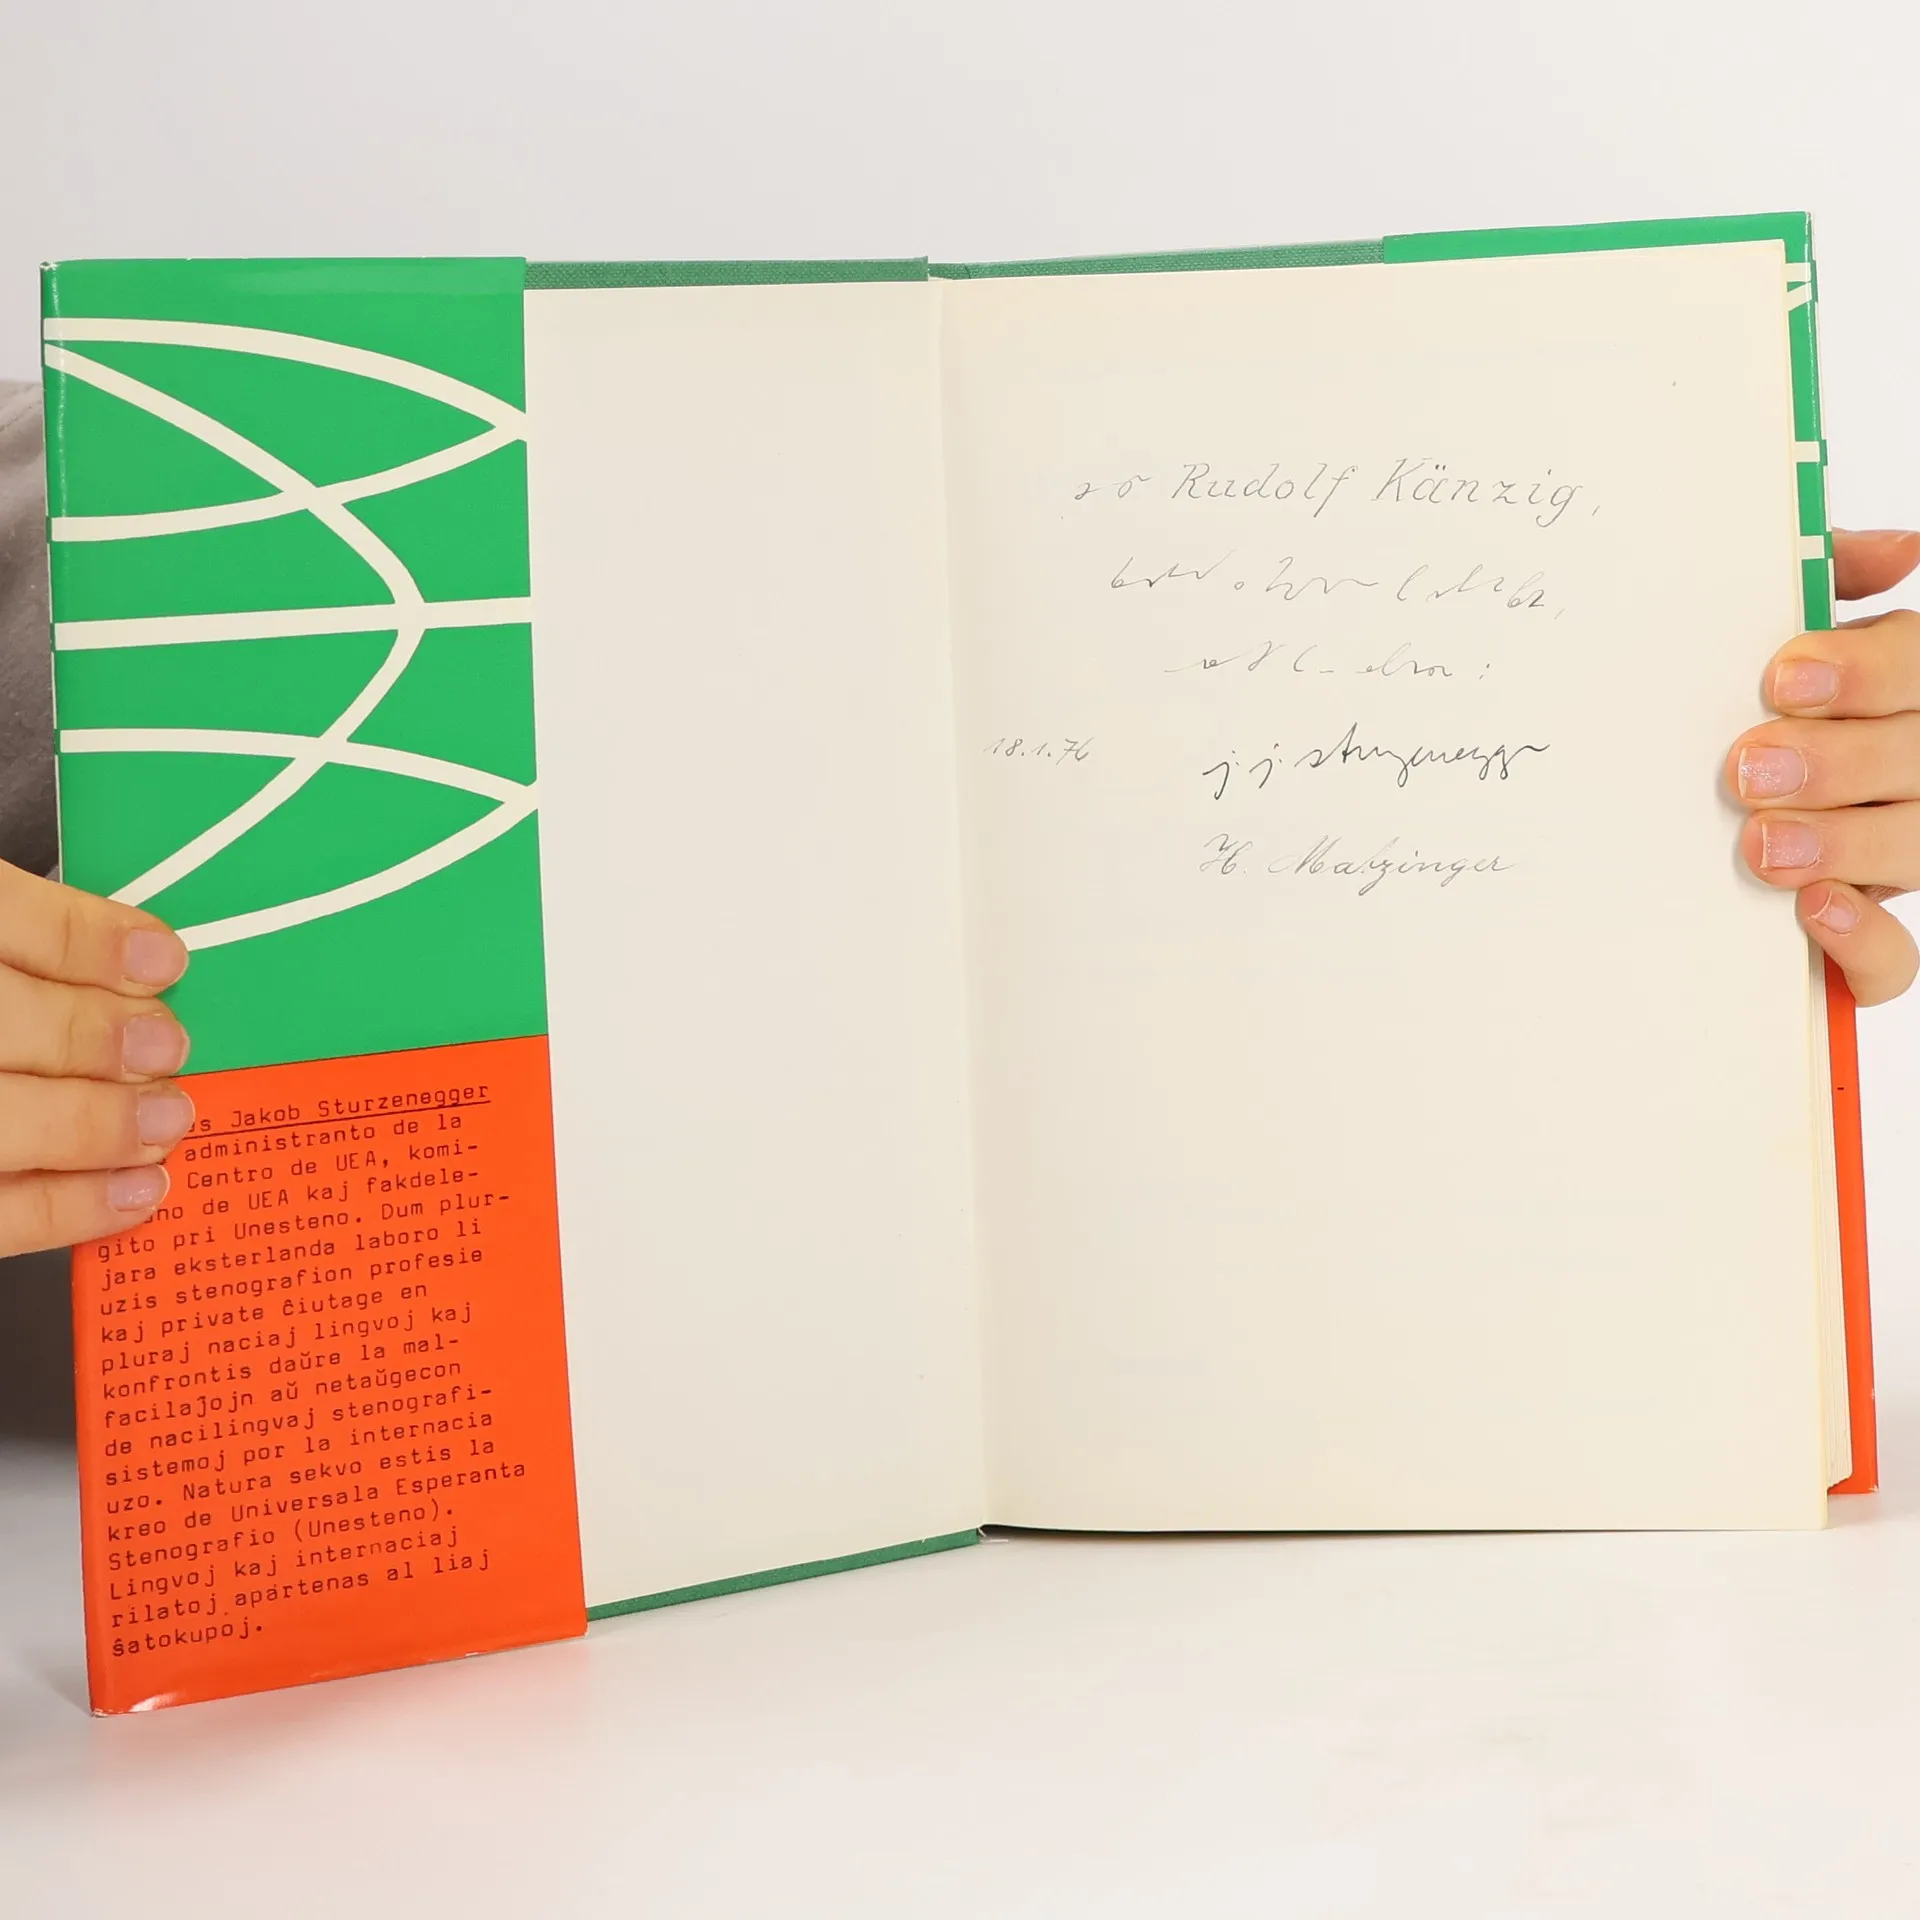 s Jakob Sturzenegger
administranto de la
Centro de UEA, komi-
no de UEA kaj fakdele-
gito pri Unesteno. Dum plur-
jara eksterlanda laboro li
uzis stenografion profesie
kaj private ĉiutage en
pluraj naciaj lingvoj kaj
konfrontis daŭre la mal-
facilaĵojn aŭ netaŭgecon
de nacilingvaj stenografi-
sistemoj por la internacia
uzo. Natura sekvo estis la
kreo de Universala Esperanta
Stenografio (Unesteno).
Lingvoj kaj internaciaj
rilatoj apartenas al liaj
ŝatokupoj.
Rudolf Känzig,
18.1.76
j. j. sturzenegger
H. Matzinger